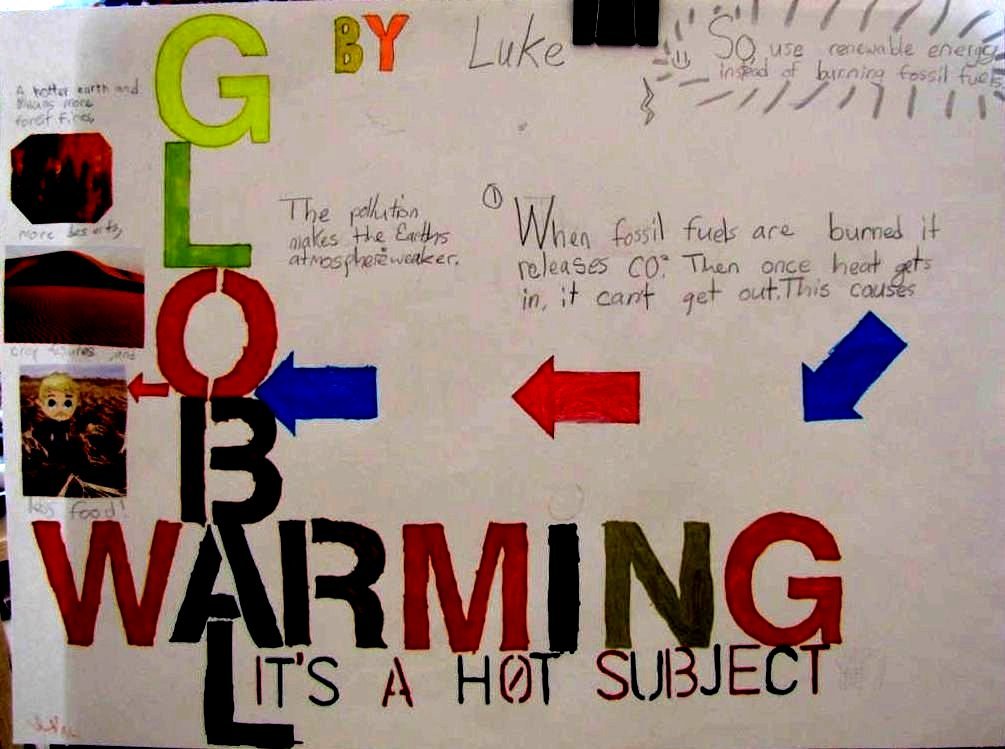 BY Luke
So use renewable energy
instead of burning fossil fuels
GLOBAL
A hotter earth and
means more
forest fires,
more deserts,
and
less food!
The pollution
makes the Earths
atmosphere weaker.
① When fossil fuels are burned it
releases CO². Then once heat gets
in, it can't get out. This causes
WARMING
IT'S A HOT SUBJECT